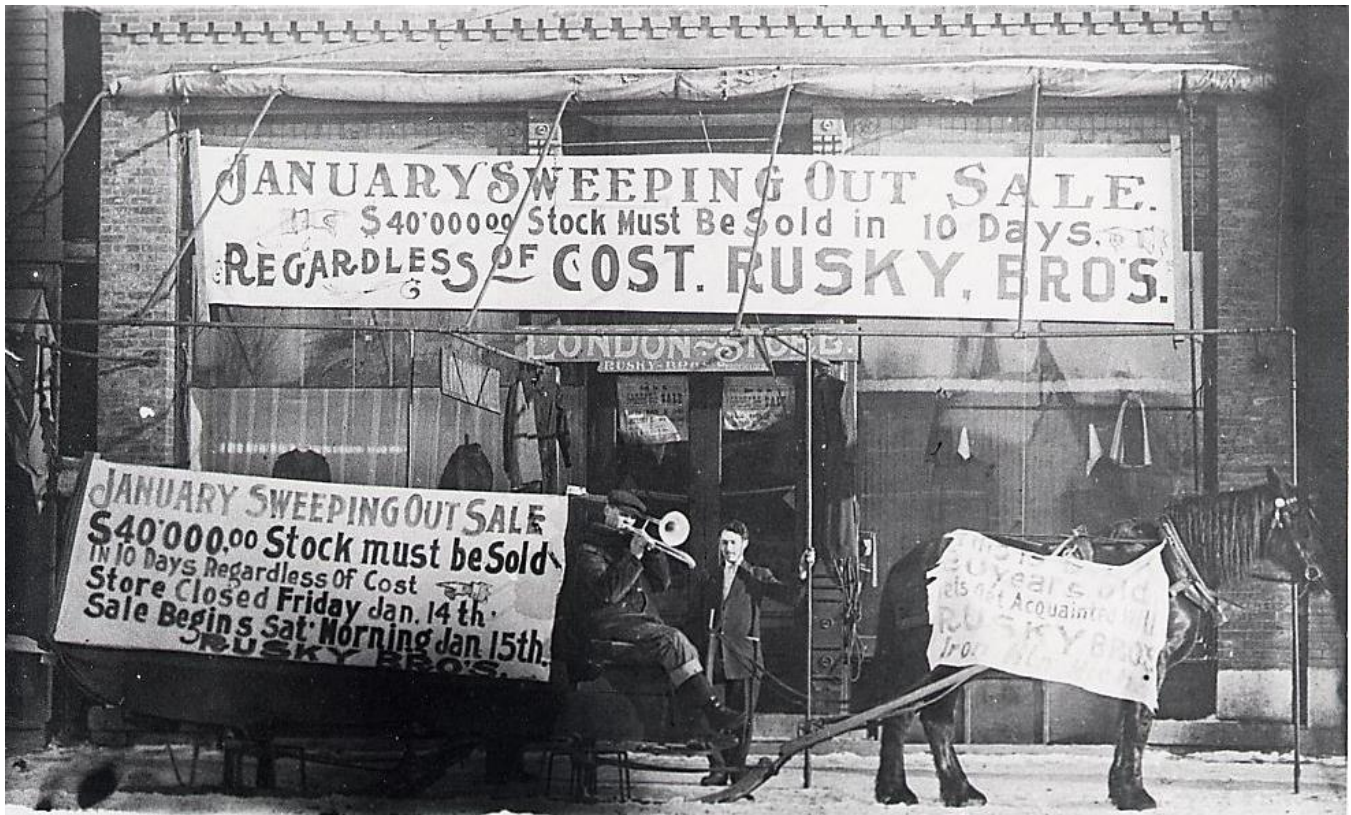 JANUARY SWEEPING OUT SALE.
$40'000 00 Stock Must Be Sold in 10 Days.
REGARDLESS OF COST. RUSKY, BRO'S.
LONDON~STORE.
RUSKY BRO'S
SALE
JANUARY SWEEPING OUT SALE
$40'000,00 Stock must be Sold
IN 10 Days Regardless Of Cost
Store Closed Friday Jan. 14th.
Sale Begins Sat' Morning Jan 15th.
RUSKY BRO'S.
This is
years old
lets get Acquainted
RUSKY BROS